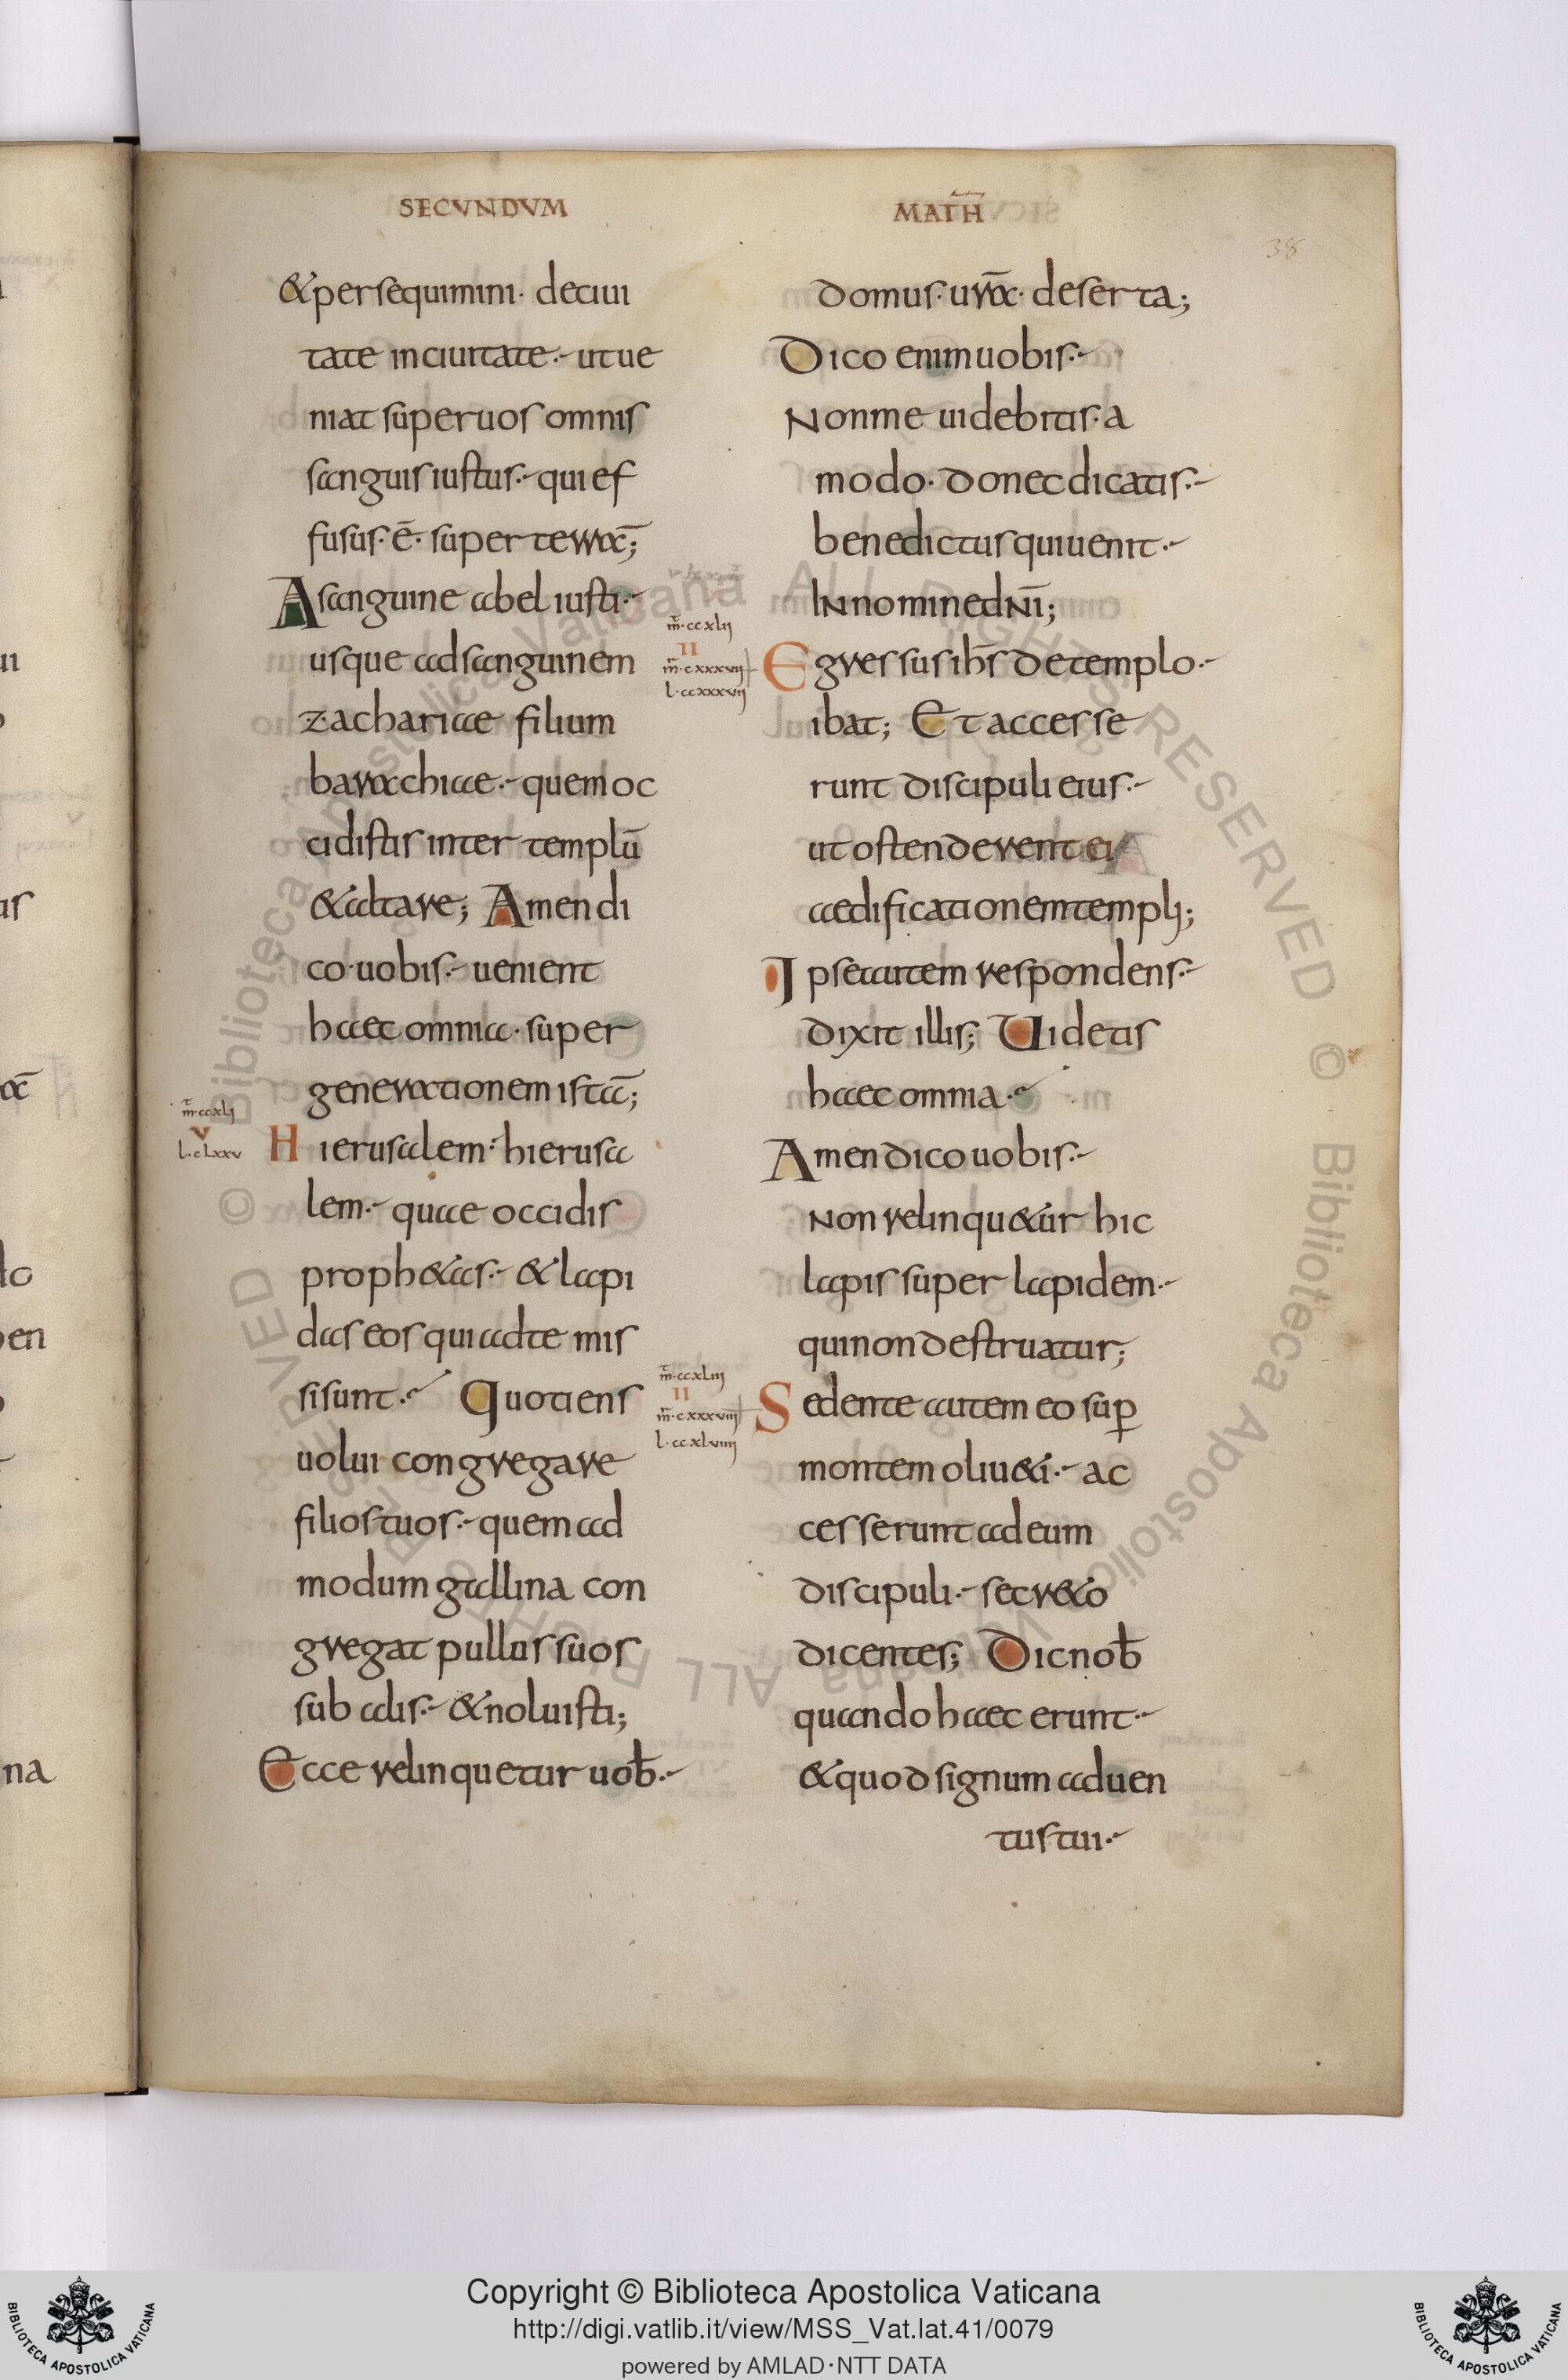 SECVNDVM
MATH̄
38
&persequimini· deciui
tate inciuitate·- utue
niat superuos omnis
sanguisiustus·- quief
fusus·ē· super terrā;
Asanguine abel iusti·-
usque adsanguinem
zachariae filium
barachiae·- quemoc
cidistis inter templū
&altare; Amendi
co·uobis·- uenient
haec omnia·super
generationem istā;
m̄·ccxlj
V
l·clxxv
Hierusalem·hierusa
lem·- quae occidis
proph&as·- &lapi
daseosquiadte mis
sisunt·- Quotiens
uolui congregare
filiostuos·- quemad
modum gallina con
gregat pullussuos
sub alis·- &noluisti;
Ecce relinquetur uob̄·-
domus·urā·deserta;
Dico enimuobis·-
Nonme uidebitis·a
modo·donecdicatis·-
benedictusquiuenit·-
INnominedNī;
m̄·ccxlij
II
m̄·cxxxvij
l·ccxxxvij
Egressusih̄s detemplo·-
ibat; Et accesse
runt discipuli eius·-
ut ostenderent ei
aedificationemtemplj;
Ipseautem respondens·-
dixit illis; Uidetis
haec omnia·-
Amendicouobis·-
Nonrelinqu&ur hic
lapissuper lapidem·-
quinondestruatur;
m̄·ccxliij
II
m̄·cxxxviiij
l·ccxlviiij
Sedente autem eo sup̱
montem oliu&i·- ac
cesserunt adeum
discipuli·- secr&o
dicentes; Dicnob̄
quandohaec erunt·-
&quodsignum aduen
tustui·-
Copyright © Biblioteca Apostolica Vaticana
http://digi.vatlib.it/view/MSS_Vat.lat.41/0079
powered by AMLAD·NTT DATA
BIBLIOTECA APOSTOLICA VATICANA
BIBLIOTECA APOSTOLICA VATICANA
© Biblioteca Apostolica Vaticana ALL RIGHTS RESERVED © Biblioteca Apostolica Vaticana ALL RIGHTS RESERVED